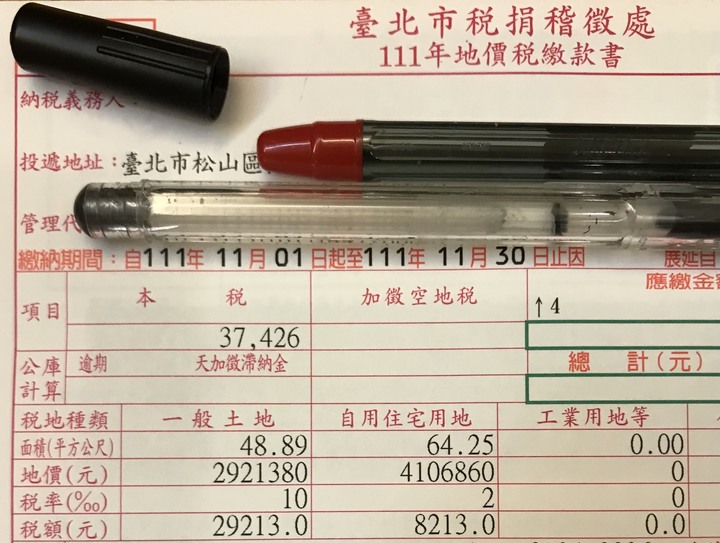 臺北市稅捐稽徵處
111年地價稅繳款書
納稅義務人：
投遞地址：臺北市松山區
管理代
繳納期間：自111年 11月 01日起至111年 11月 30日止因
展延自
應繳金額
項目 本 稅 加徵空地稅 ↑4
37,426
公庫計算 逾期 天加徵滯納金 總 計(元)
稅地種類 一般土地 自用住宅用地 工業用地等
面積(平方公尺) 48.89 64.25 0.00
地價(元) 2921380 4106860 0
稅率(‰) 10 2 0
稅額(元) 29213.0 8213.0 0.0